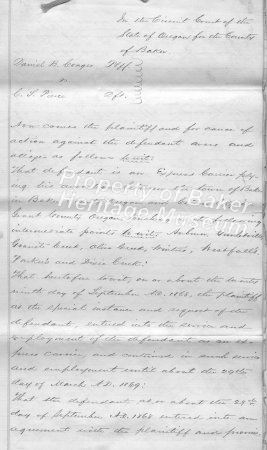 In the Circuit Court of the
State of Oregon for the County
of Baker
David B. Conger Plff
vs
C. S. Pierce Dft.
Now comes the plaintiff and for cause of
action against the defendant avers and
alleges as follows to wit:
That defendant is an Express Carrier ply-
ing his town of Baker
in Baker following
Grant County Oregon
intermediate points to wit; Auburn
Granite Creek, Olive Creek, Westfall's
Parker's and Dixie Creek:
That heretofore to wit, on or about the twenty
ninth day of September A.D. 1868, the plaintiff
at the special instance and request of the
defendant, entered into the service and
employment of the defendant as an ex-
press carrier and continued in such service
and employment until about the 29th
day of March A.D. 1869:
That the defendant at or about the 29th
day of September A.D. 1868 entered into an
agreement with the plaintiff and promis
Property of Baker
Heritage Museum